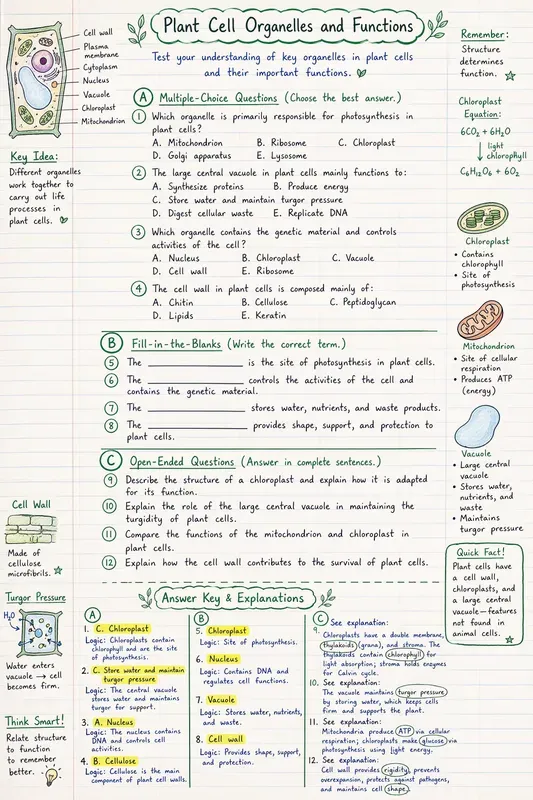 Plant Cell Organelles and Functions
Test your understanding of key organelles in plant cells
and their important functions.
Cell wall
Plasma
membrane
Cytoplasm
Nucleus
Vacuole
Chloroplast
Mitochondrion
Key Idea:
Different organelles
work together to
carry out life
processes in
plant cells.
A Multiple-Choice Questions (Choose the best answer.)
1 Which organelle is primarily responsible for photosynthesis in
plant cells?
A. Mitochondrion B. Ribosome C. Chloroplast
D. Golgi apparatus E. Lysosome
2 The large central vacuole in plant cells mainly functions to:
A. Synthesize proteins B. Produce energy
C. Store water and maintain turgor pressure
D. Digest cellular waste E. Replicate DNA
3 Which organelle contains the genetic material and controls
activities of the cell?
A. Nucleus B. Chloroplast C. Vacuole
D. Cell wall E. Ribosome
4 The cell wall in plant cells is composed mainly of:
A. Chitin B. Cellulose C. Peptidoglycan
D. Lipids E. Keratin
B Fill-in-the-Blanks (Write the correct term.)
5 The ____________ is the site of photosynthesis in plant cells.
6 The ____________ controls the activities of the cell and
contains the genetic material.
7 The ____________ stores water, nutrients, and waste products.
8 The ____________ provides shape, support, and protection to
plant cells.
C Open-Ended Questions (Answer in complete sentences.)
9 Describe the structure of a chloroplast and explain how it is adapted
for its function.
10 Explain the role of the large central vacuole in maintaining the
turgidity of plant cells.
11 Compare the functions of the mitochondrion and chloroplast in
plant cells.
12 Explain how the cell wall contributes to the survival of plant cells.
Remember:
Structure
determines
function.
Chloroplast
Equation:
6CO₂ + 6H₂O
↓ light
chlorophyll
C₆H₁₂O₆ + 6O₂
Chloroplast
• Contains
chlorophyll
• Site of
photosynthesis
Mitochondrion
• Site of cellular
respiration
• Produces ATP
(energy)
Vacuole
• Large central
vacuole
• Stores water,
nutrients, and
waste
• Maintains
turgor pressure
Quick Fact!
Plant cells have
a cell wall,
chloroplasts,
and a large
central
vacuole—features
not found in
animal cells.
Cell Wall
Made of
cellulose
microfibrils.
Turgor Pressure
H₂O
Water enters
vacuole → cell
becomes firm.
Think Smart!
Relate structure
to function
to remember
better.
Answer Key & Explanations
A
1. C. Chloroplast
Logic: Chloroplasts contain
chlorophyll and are the site
of photosynthesis.
2. C. Store water and maintain
turgor pressure
Logic: The central vacuole
stores water and maintains
turgor for support.
3. A. Nucleus
Logic: The nucleus contains
DNA and controls cell
activities.
4. B. Cellulose
Logic: Cellulose is the main
component of plant cell walls.
B
5. Chloroplast
Logic: Site of photosynthesis.
6. Nucleus
Logic: Contains DNA and
regulates cell functions.
7. Vacuole
Logic: Stores water, nutrients,
and waste.
8. Cell wall
Logic: Provides shape, support,
and protection.
C
9. See explanation:
Chloroplasts have a double membrane,
thylakoids (grana), and stroma. The
thylakoids contain chlorophyll for
light absorption; stroma holds enzymes
for Calvin cycle.
10. See explanation:
The vacuole maintains turgor pressure
by storing water, which keeps cells
firm and supports the plant.
11. See explanation:
Mitochondria produce ATP via cellular
respiration; chloroplasts make glucose via
photosynthesis using light energy.
12. See explanation:
Cell wall provides rigidity, prevents
overexpansion, protects against pathogens,
and maintains cell shape.